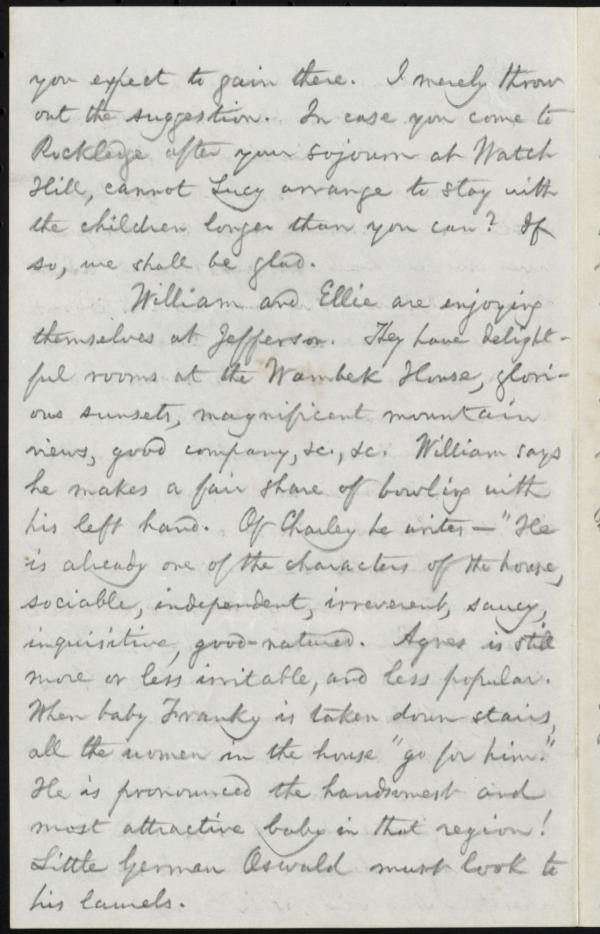 you expect to gain there. I merely throw
out the suggestion. In case you come to
Rockledge after your sojourn at Watch
Hill, cannot Lucy arrange to stay with
the children longer than you can? If
so, we shall be glad.
William and Ellie are enjoying
themselves at Jefferson. They have delight-
ful rooms at the Wambek House, glori-
ous sunsets, magnificent mountain
views, good company, &c., &c. William says
he makes a fair share of bowling with
his left hand. Of Charley he writes — "He
is already one of the characters of the house,
sociable, independent, irreverent, saucy,
inquisitive, good-natured. Agnes is still
more or less irritable, and less popular.
When baby Franky is taken down stairs,
all the women in the house "go for him."
He is pronounced the handsomest and
most attractive baby in that region!
Little German Oswald must look to
his laurels.